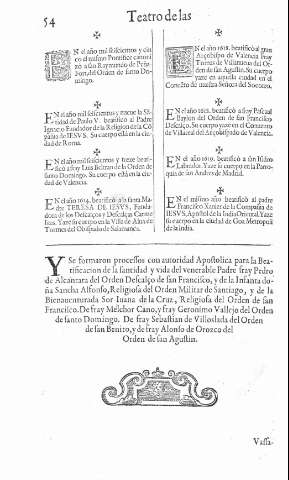 54
Teatro de las
EN el año mil seiscientos y cin
co el mismo Pontifice canoni
zò a san Raymundo de Peña
fort del Orden de santo Do-
mingo.
EN el año mil seiscientos y nueue la San-
tidad de Paulo V. beatificò al Padre
Ignacio Fundador de la Religion de la Cõ
pañia de IESVS. Su cuerpo està en la ciu-
dad de Roma.
EN el año mil seiscientos y treze beati-
ficò a fray Luis Beltran de la Orden de
santo Domingo. Su cuerpo està en ciu-
dad de Valencia.
EN el año 1614. beatificò a la santa Ma-
dre TERESA DE IESVS, Funda-
dora de los Descalços y Descalças Carme-
litas. Yaze su cuerpo en la Villa de Alua de
Tormes del Obispado de Salamanca.
EN el año 1618. beatificò al gran
Arçobispo de Valencia fray
Tomas de Villanueua del Or-
den de san Agustin. Su cuerpo
yaze en aquella ciudad en el
Conuento de nuestra Señora del Socorro.
EN el año 1618. beatificò a fray Pascual
Baylon del Orden de san Francisco
Descalço. Su cuerpo yaze en el Conuento
de Villareal del Arçobispado de Valencia.
EN el año 1619. beatificò a san Isidro
Labrador. Yaze su cuerpo en la Parro-
quia de san Andres de Madrid.
EN el mismo año beatificò al padre
Francisco Xauier de la Compañia de
IESVS, Apostol de la India Oriental. Yaze
su cuerpo en la ciudad de Goa Metropoli
de la india.
Y Se formaron processos con autoridad Apostolica para la Bea-
tificacion de la santidad y vida del venerable Padre fray Pedro
de Alcantara del Orden Descalço de san Francisco, y de la Infanta do-
ña Sancha Alfonso, Religiosa del Orden Militar de Santiago, y de la
Bienauenturada Sor Iuana de la Cruz, Religiosa del Orden de san
Francisco. De fray Melchor Cano, y fray Geronimo Vallejo del Orden
de santo Domingo. De fray Sebastian de Villoslada del Orden
de san Benito, y de fray Alonso de Orozco del
Orden de san Agustin.
Vassa-